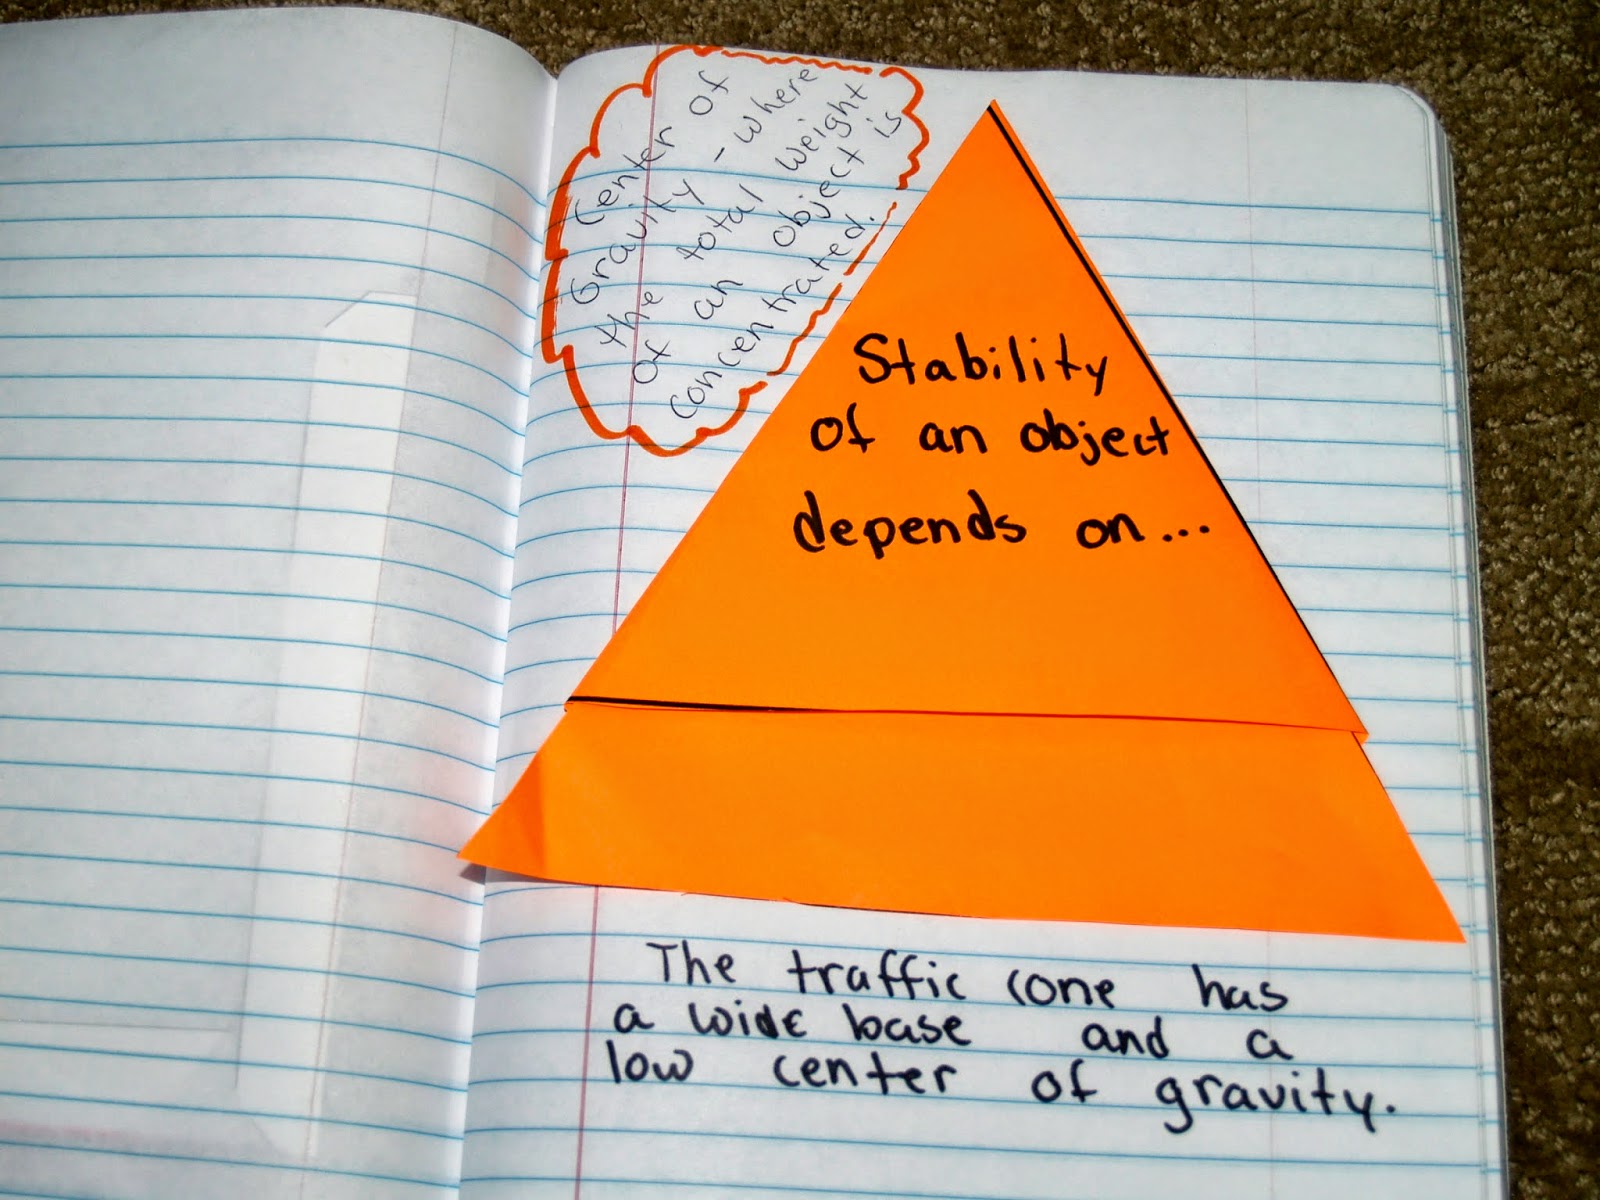 Center of
Gravity - where
the total weight
of an object is
concentrated.
Stability
of an object
depends on...
The traffic cone has
a wide base and a
low center of gravity.